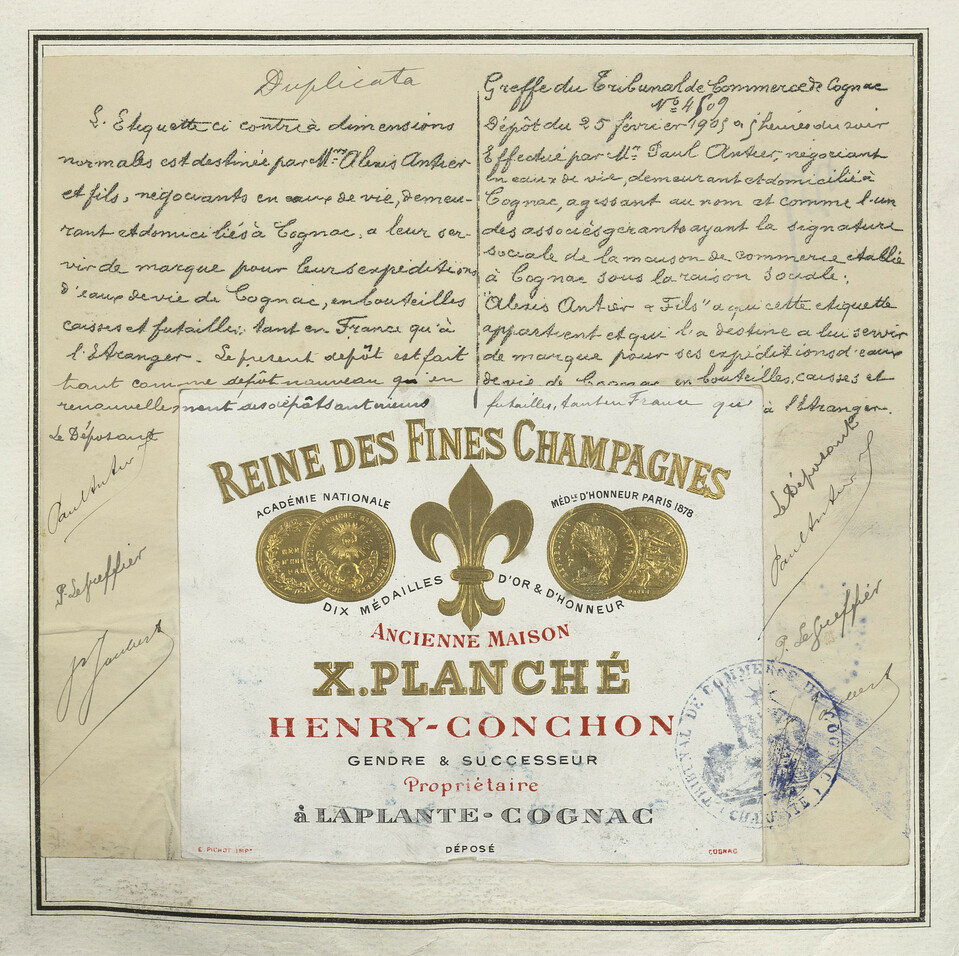 Duplicata
L'Etiquette ci contre à dimensions
normales est destinée par Mrs Alexis Antier
et fils, négociants en eaux de vie, demeu-
rant et domiciliés à Cognac, a leur ser-
vir de marque pour leurs expéditions
d'eaux de vie de Cognac, en bouteilles
caisses et futailles, tant en France qu'à
l'Etranger. Le présent dépôt est fait
tant comme dépôt nouveau qu'en
renouvellement des dépôts antérieurs
Le Déposant
Paul Antier
P. Le Greffier
Greffe du Tribunal de Commerce de Cognac
No 4509
Dépôt du 25 février 1905 a 5 heures du soir
Effectué par Mr. Paul Antier, négociant
en eaux de vie, demeurant et domicilié à
Cognac, agissant au nom et comme l'un
des associés gérants ayant la signature
sociale de la maison de commerce établie
à Cognac sous la raison sociale:
"Alexis Antier & Fils" a qui cette etiquette
appartient et qui l'a destine a lui servir
de marque pour ses expéditions d'eaux
de vie de Cognac en bouteilles, caisses et
futailles, tant en France qu' à l'Etranger.
Le Déposant
Paul Antier
P. Le Greffier
REINE DES FINES CHAMPAGNES
ACADÉMIE NATIONALE
MÉDLE D'HONNEUR PARIS 1878
DIX MÉDAILLES D'OR & D'HONNEUR
ANCIENNE MAISON
X. PLANCHÉ
HENRY-CONCHON
GENDRE & SUCCESSEUR
Propriétaire
à LAPLANTE-COGNAC
E. PICHOT IMPR
DÉPOSÉ
COGNAC
TRIBUNAL DE COMMERCE DE COGNAC
(CHARENTE)